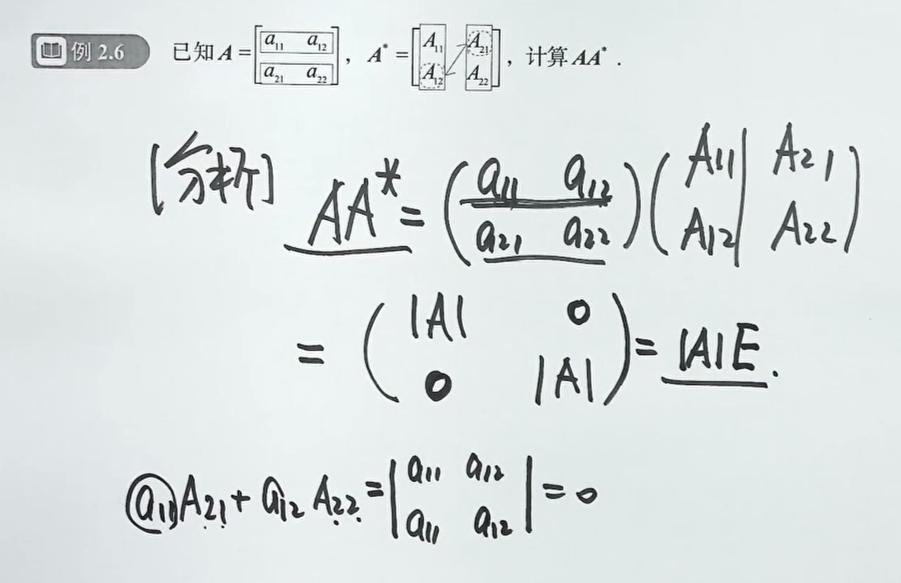 例 2.6 已知 A = [a₁₁ a₁₂ a₂₁ a₂₂], A* = [A₁₁ A₂₁ A₁₂ A₂₂], 计算 AA*.
[分析] AA* = (a₁₁ a₁₂ a₂₁ a₂₂)(A₁₁ A₂₁ A₁₂ A₂₂)
= (|A| 0 0 |A|) = |A|E.
a₁₁A₂₁ + a₁₂A₂₂ = |a₁₁ a₁₂ a₁₁ a₁₂| = 0